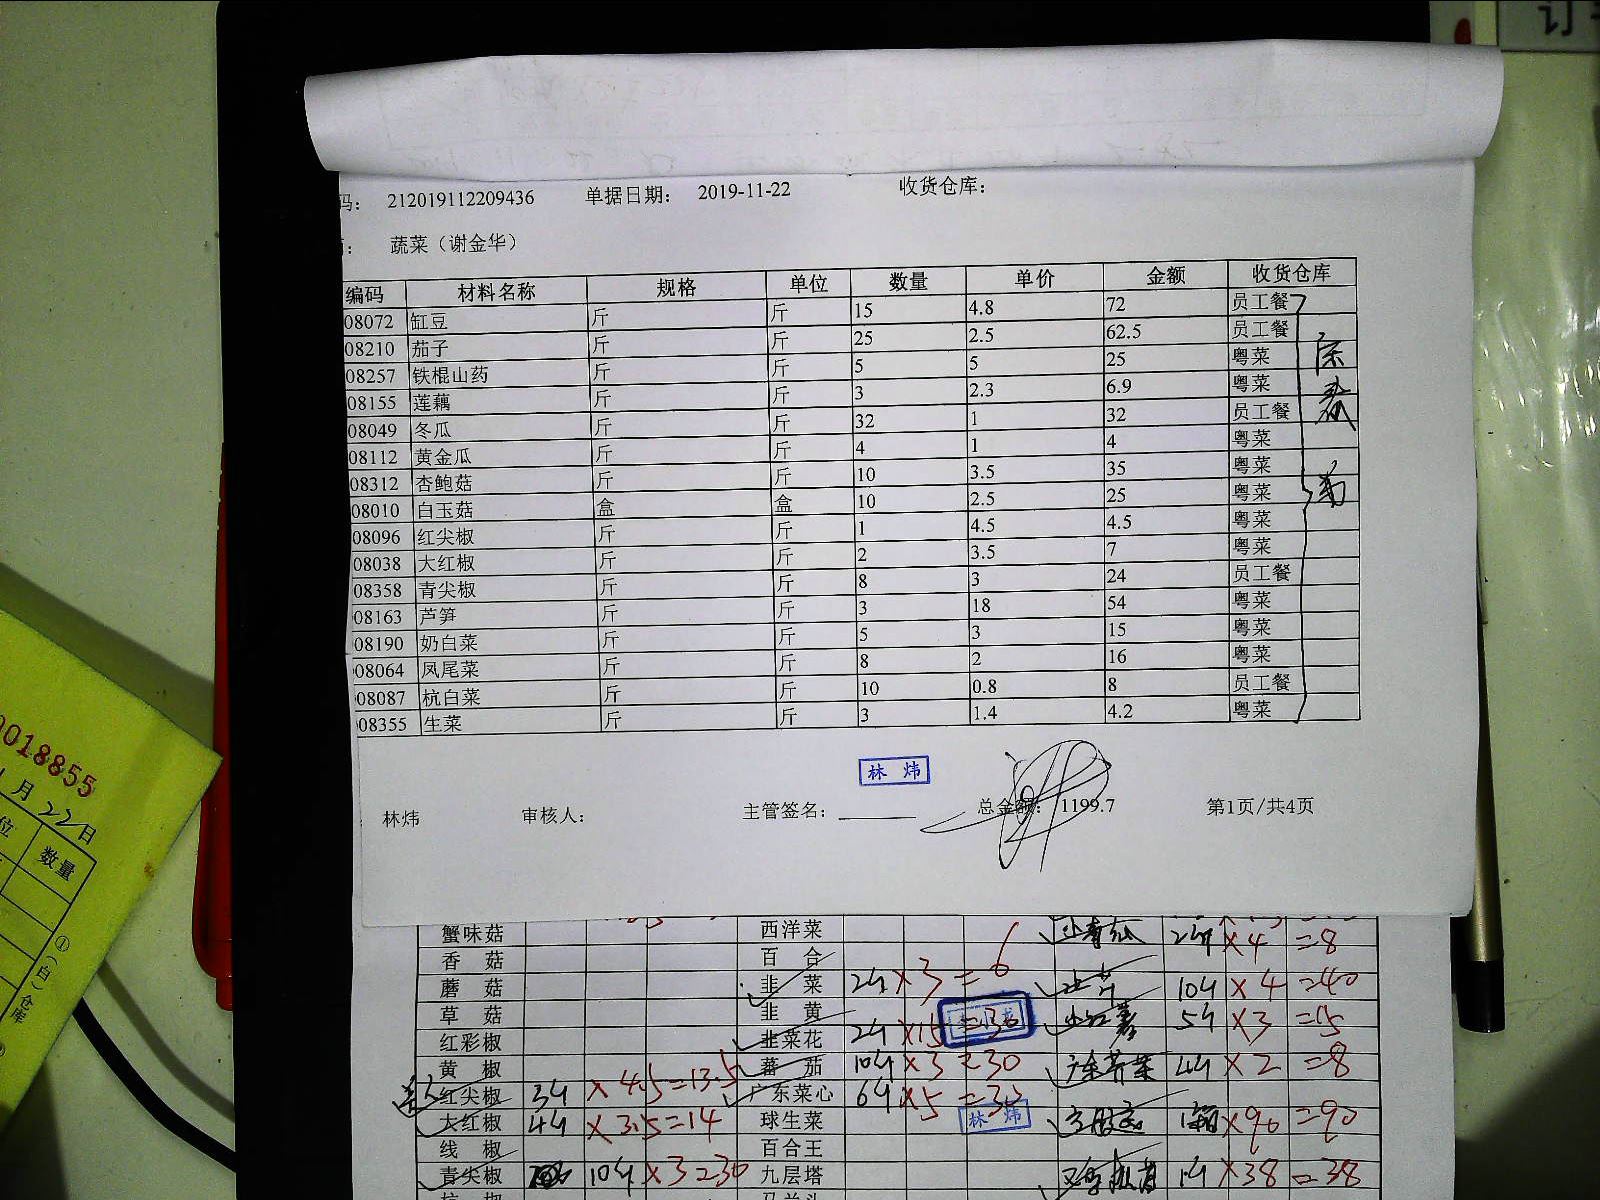 订
码： 212019112209436 单据日期： 2019-11-22 收货仓库：
蔬菜（谢金华）
编码 材料名称 规格 单位 数量 单价 金额 收货仓库
08072 缸豆 斤 斤 15 4.8 72 员工餐
08210 茄子 斤 斤 25 2.5 62.5 员工餐
08257 铁棍山药 斤 斤 5 5 25 粤菜
08155 莲藕 斤 斤 3 2.3 6.9 粤菜
08049 冬瓜 斤 斤 32 1 32 员工餐
08112 黄金瓜 斤 斤 4 1 4 粤菜
08312 杏鲍菇 斤 斤 10 3.5 35 粤菜
08010 白玉菇 盒 盒 10 2.5 25 粤菜
08096 红尖椒 斤 斤 1 4.5 4.5 粤菜
08038 大红椒 斤 斤 2 3.5 7 粤菜
08358 青尖椒 斤 斤 8 3 24 员工餐
08163 芦笋 斤 斤 3 18 54 粤菜
08190 奶白菜 斤 斤 5 3 15 粤菜
08064 凤尾菜 斤 斤 8 2 16 粤菜
08087 杭白菜 斤 斤 10 0.8 8 员工餐
08355 生菜 斤 斤 3 1.4 4.2 粤菜
林炜
林炜 审核人： 主管签名： 总金额： 1199.7 第1页/共4页
0018855
月22日
位 数量
①（白）仓库
蟹味菇 西洋菜 ×4 =8
香菇 百合
蘑菇 韭菜 2斤 ×3 =6 10斤 ×4 =40
草菇 韭黄 5斤 ×3 =15
红彩椒 韭菜花 2斤 ×15 =30
黄椒 蕃茄 10斤 ×3 =30 ×2 =8
红尖椒 3斤 ×4.5=13.5 广东菜心 6斤 ×5 =30
大红椒 4斤 ×3.5=14 球生菜 林炜 ×90 =90
线椒 百合王
青尖椒 10斤 ×3=30 九层塔 1斤 ×38 =38